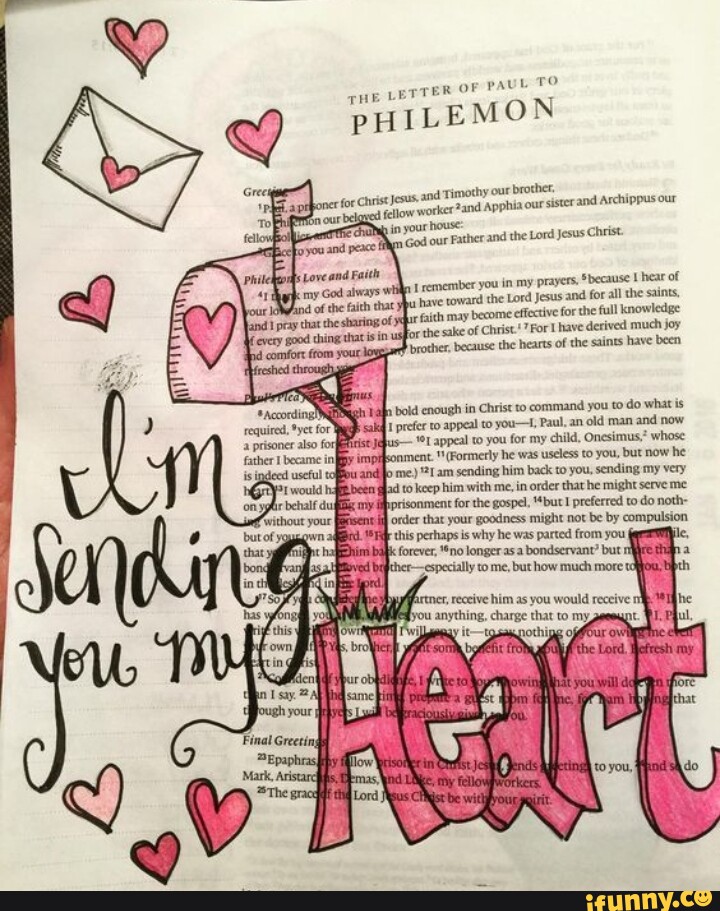 THE LETTER OF PAUL TO
PHILEMON
Greeting
oner for Christ Jesus, and Timothy our brother,
To Philemon our beloved fellow worker ²and Apphia our sister and Archippus our
fellow soldier, and the church in your house:
³Grace to you and peace from God our Father and the Lord Jesus Christ.
Philemon's Love and Faith
⁴I thank my God always when I remember you in my prayers, ⁵because I hear of
your love and of the faith that you have toward the Lord Jesus and for all the saints,
⁶and I pray that the sharing of your faith may become effective for the full knowledge
of every good thing that is in us for the sake of Christ.¹ ⁷For I have derived much joy
and comfort from your love, my brother, because the hearts of the saints have been
refreshed through you.
Paul's Plea for Onesimus
⁸Accordingly, though I am bold enough in Christ to command you to do what is
required, ⁹yet for love's sake I prefer to appeal to you—I, Paul, an old man and now
a prisoner also for Christ Jesus— ¹⁰I appeal to you for my child, Onesimus,² whose
father I became in my imprisonment. ¹¹(Formerly he was useless to you, but now he
is indeed useful to you and to me.) ¹²I am sending him back to you, sending my very
heart. ¹³I would have been glad to keep him with me, in order that he might serve me
on your behalf during my imprisonment for the gospel, ¹⁴but I preferred to do noth-
ing without your consent in order that your goodness might not be by compulsion
but of your own accord. ¹⁵For this perhaps is why he was parted from you for a while,
that you might have him back forever, ¹⁶no longer as a bondservant³ but more than a
bondservant, as a beloved brother—especially to me, but how much more to you, both
in the flesh and in the Lord.
¹⁷So if you consider me your partner, receive him as you would receive me. ¹⁸If he
has wronged you owes you anything, charge that to my account. ¹⁹I, Paul,
write this with my own hand: I will repay it—to say nothing of your owing me even
your own self. ²⁰Yes, brother, I want some benefit from you in the Lord. Refresh my
heart in Christ.
²¹Confident of your obedience, I write to you, knowing that you will do even more
than I say. ²²At the same time, prepare a guest room for me, for I am hoping that
through your prayers I will be graciously given to you.
Final Greetings
²³Epaphras, my fellow prisoner in Christ Jesus, sends greetings to you, ²⁴and so do
Mark, Aristarchus, Demas, and Luke, my fellow workers.
²⁵The grace of the Lord Jesus Christ be with your spirit.
I'm
Sending
you my
Heart
ifunny.co